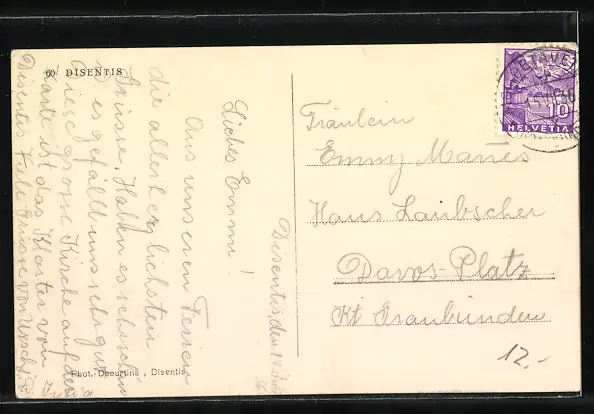 60 DISENTIS
Disentis, den
Liebes Emmi!
Aus unseren Ferien
die allerherzlichsten
Grüsse. Haben es schön
u. es gefällt uns sehr gut
Diese grosse Kirche auf der
Karte ist das Kloster von
Disentis Viele Grüsse von
Phot. Decurtins, Disentis
HELVETIA
10
Fräulein
Emmy
Haus Laubscher
Davos-Platz
Kt Graubünden
12.-